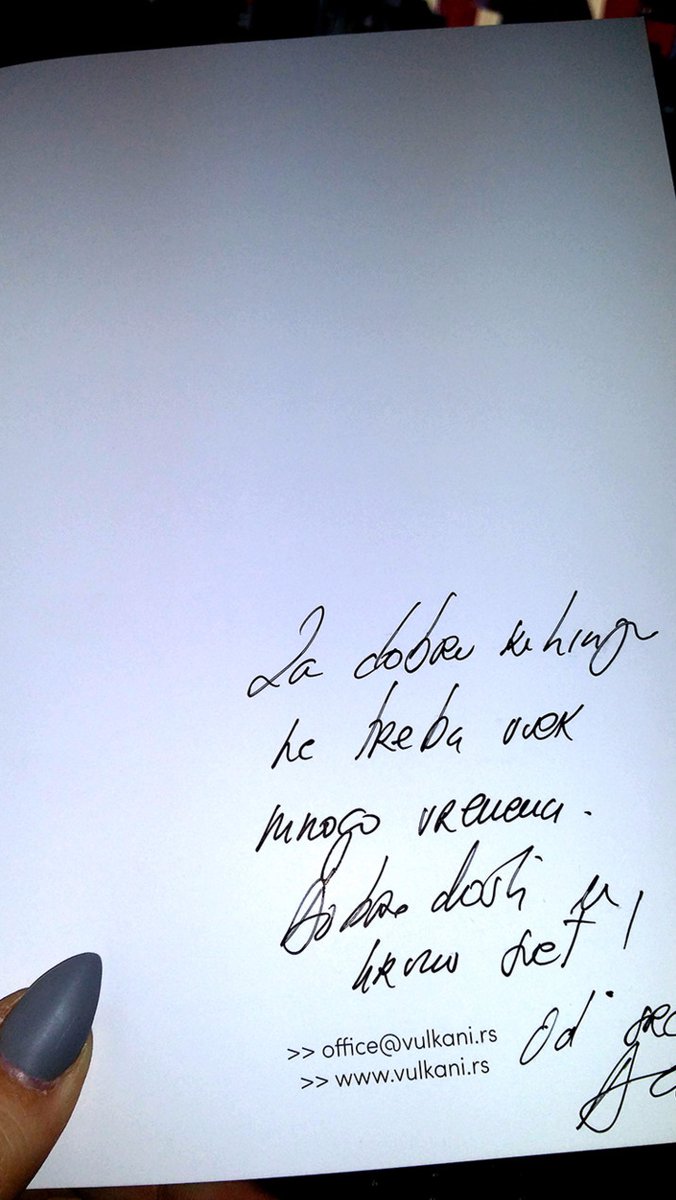 Za dobru knjigu
ne treba uvek
mnogo vremena.
Dobro došli u
svet!
>> office@vulkani.rs
>> www.vulkani.rs
Od src